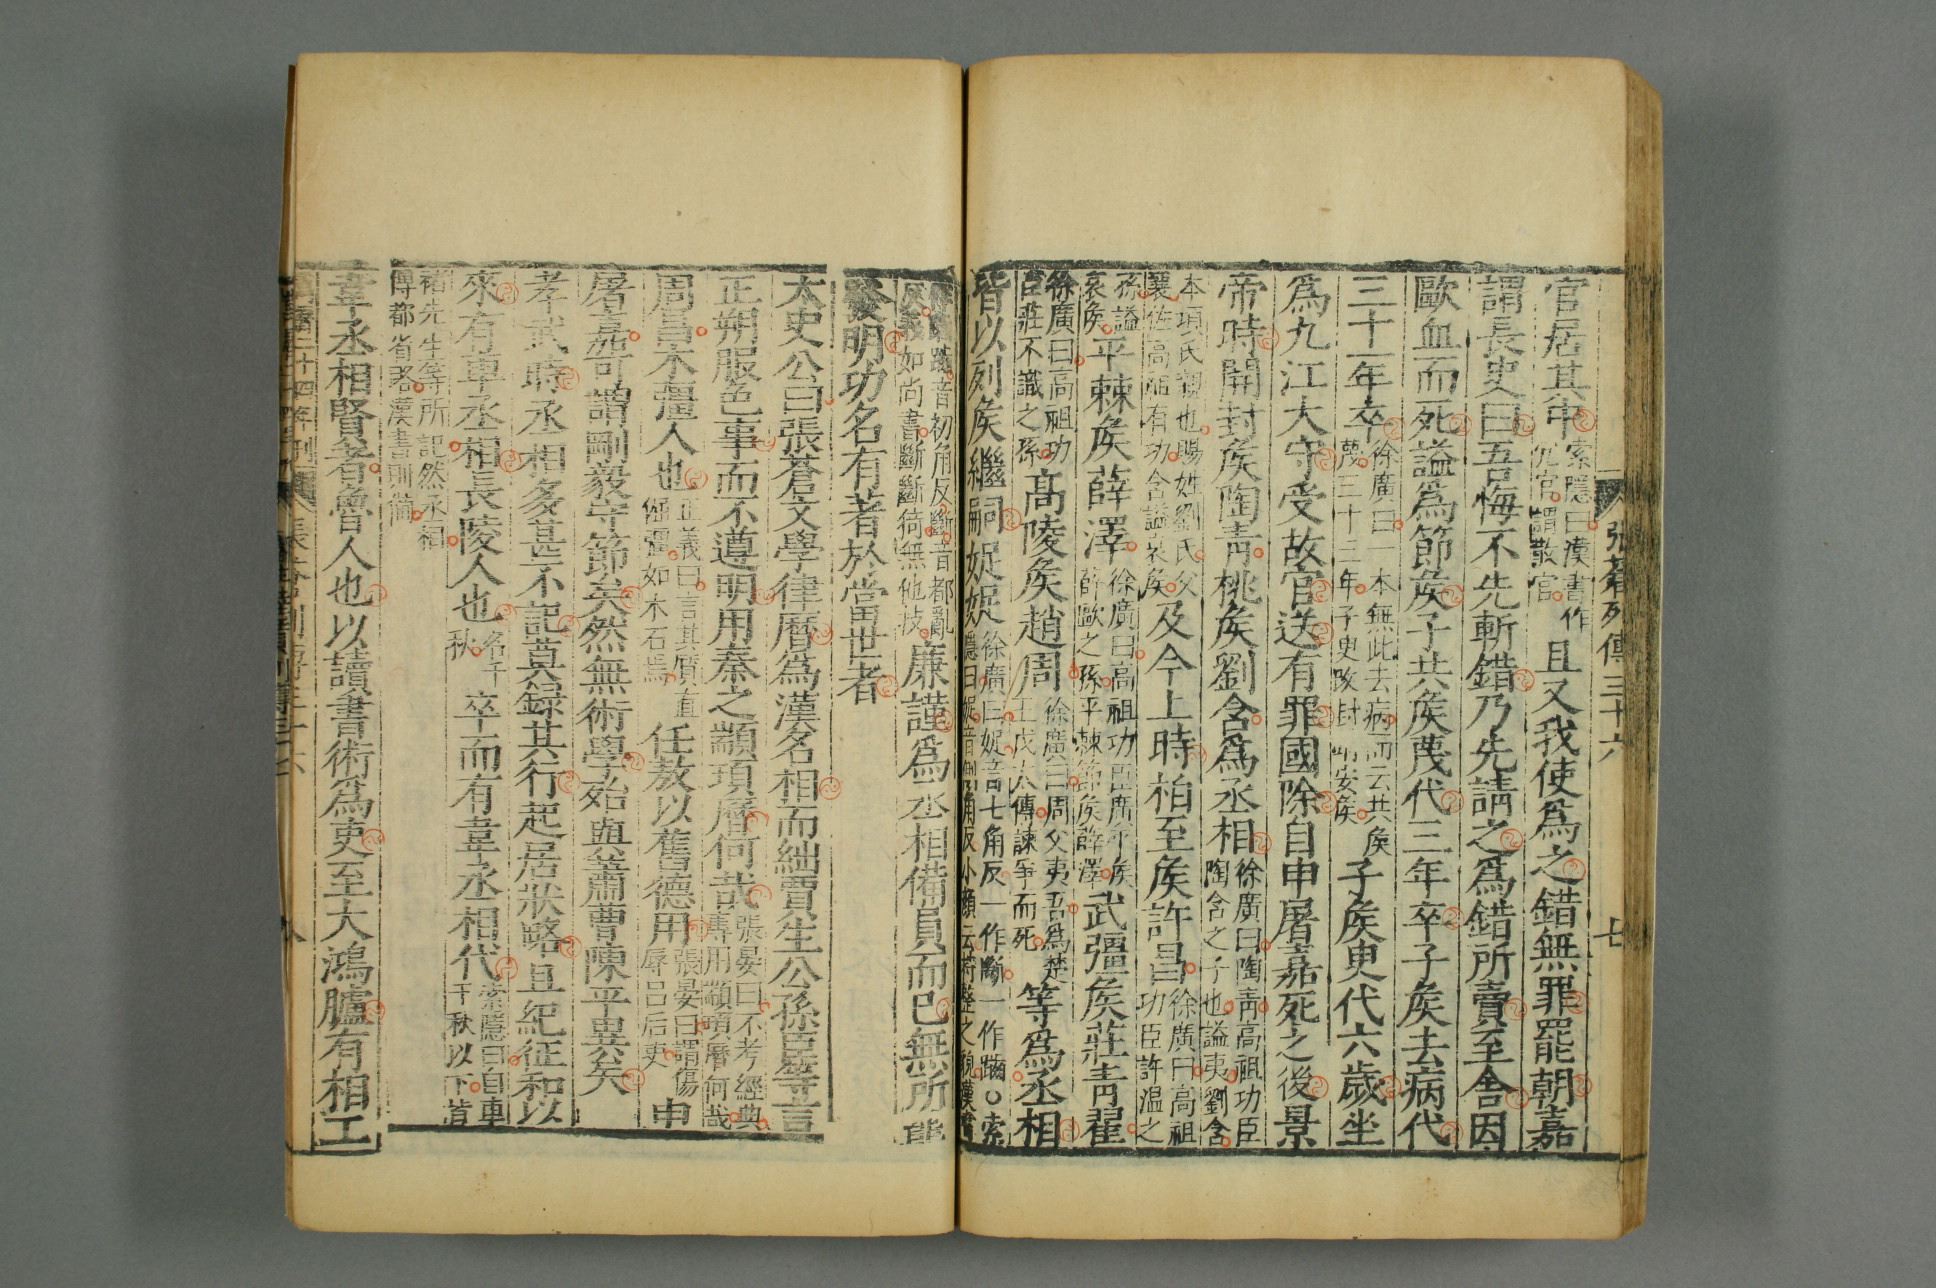 官居其中索隱曰漢書作冗官謂散官且又我使爲之錯無罪罷朝嘉
謂長史曰吾悔不先斬錯乃先請之爲錯所賣至舍因
歐血而死謚爲節矦子共矦蔑代三年卒子矦去病代
三十一年卒徐廣曰一本無此去病而云共矦蔑三十三年子臾改封靖安矦子矦臾代六歲坐
爲九江太守受故官送有罪國除自申屠嘉死之後景
帝時開封矦陶青桃矦劉舍爲丞相徐廣曰陶青高祖功臣陶舍之子也謚夷劉舍
本項氏親也賜姓劉氏父襄佐高祖有功舍謚哀矦及今上時柏至矦許昌徐廣曰高祖功臣許溫之
孫謚哀矦平棘矦薛澤徐廣曰高祖功臣廣平矦薛歐之孫平棘節矦薛澤武彊矦莊青翟
徐廣曰高祖功臣莊不識之孫高陵矦趙周徐廣曰周父夷吾爲楚王戊太傅諫爭而死等爲丞相
皆以列矦繼嗣娖娖徐廣曰娖音七角反一作斷一作躪○索隱曰娖音側角反小顏云持整之貌漢書
作躪躪音初角反斷音都亂反義如尚書斷斷猗無他技廉謹爲丞相備員而已無所能
發明功名有著於當世者
太史公曰張蒼文學律曆爲漢名相而絀賈生公孫臣等言
正朔服色事而不遵明用秦之顓頊曆何哉張晏曰不考經典專用顓頊曆何哉
周昌木彊人也正義曰言其質直倔彊如木石焉任敖以舊德用張晏曰謂傷辱呂后吏申
屠嘉可謂剛毅守節矣然無術學殆與蕭曹陳平異矣
孝武時丞相多甚不記莫錄其行起居狀略且紀征和以
來有車丞相長陵人也名千秋卒而有韋丞相代索隱曰自車千秋以下皆
褚先生等所記然丞相傳都省略漢書則備
韋丞相賢者魯人也以讀書術爲吏至大鴻臚有相工
張蒼列傳三十六
七